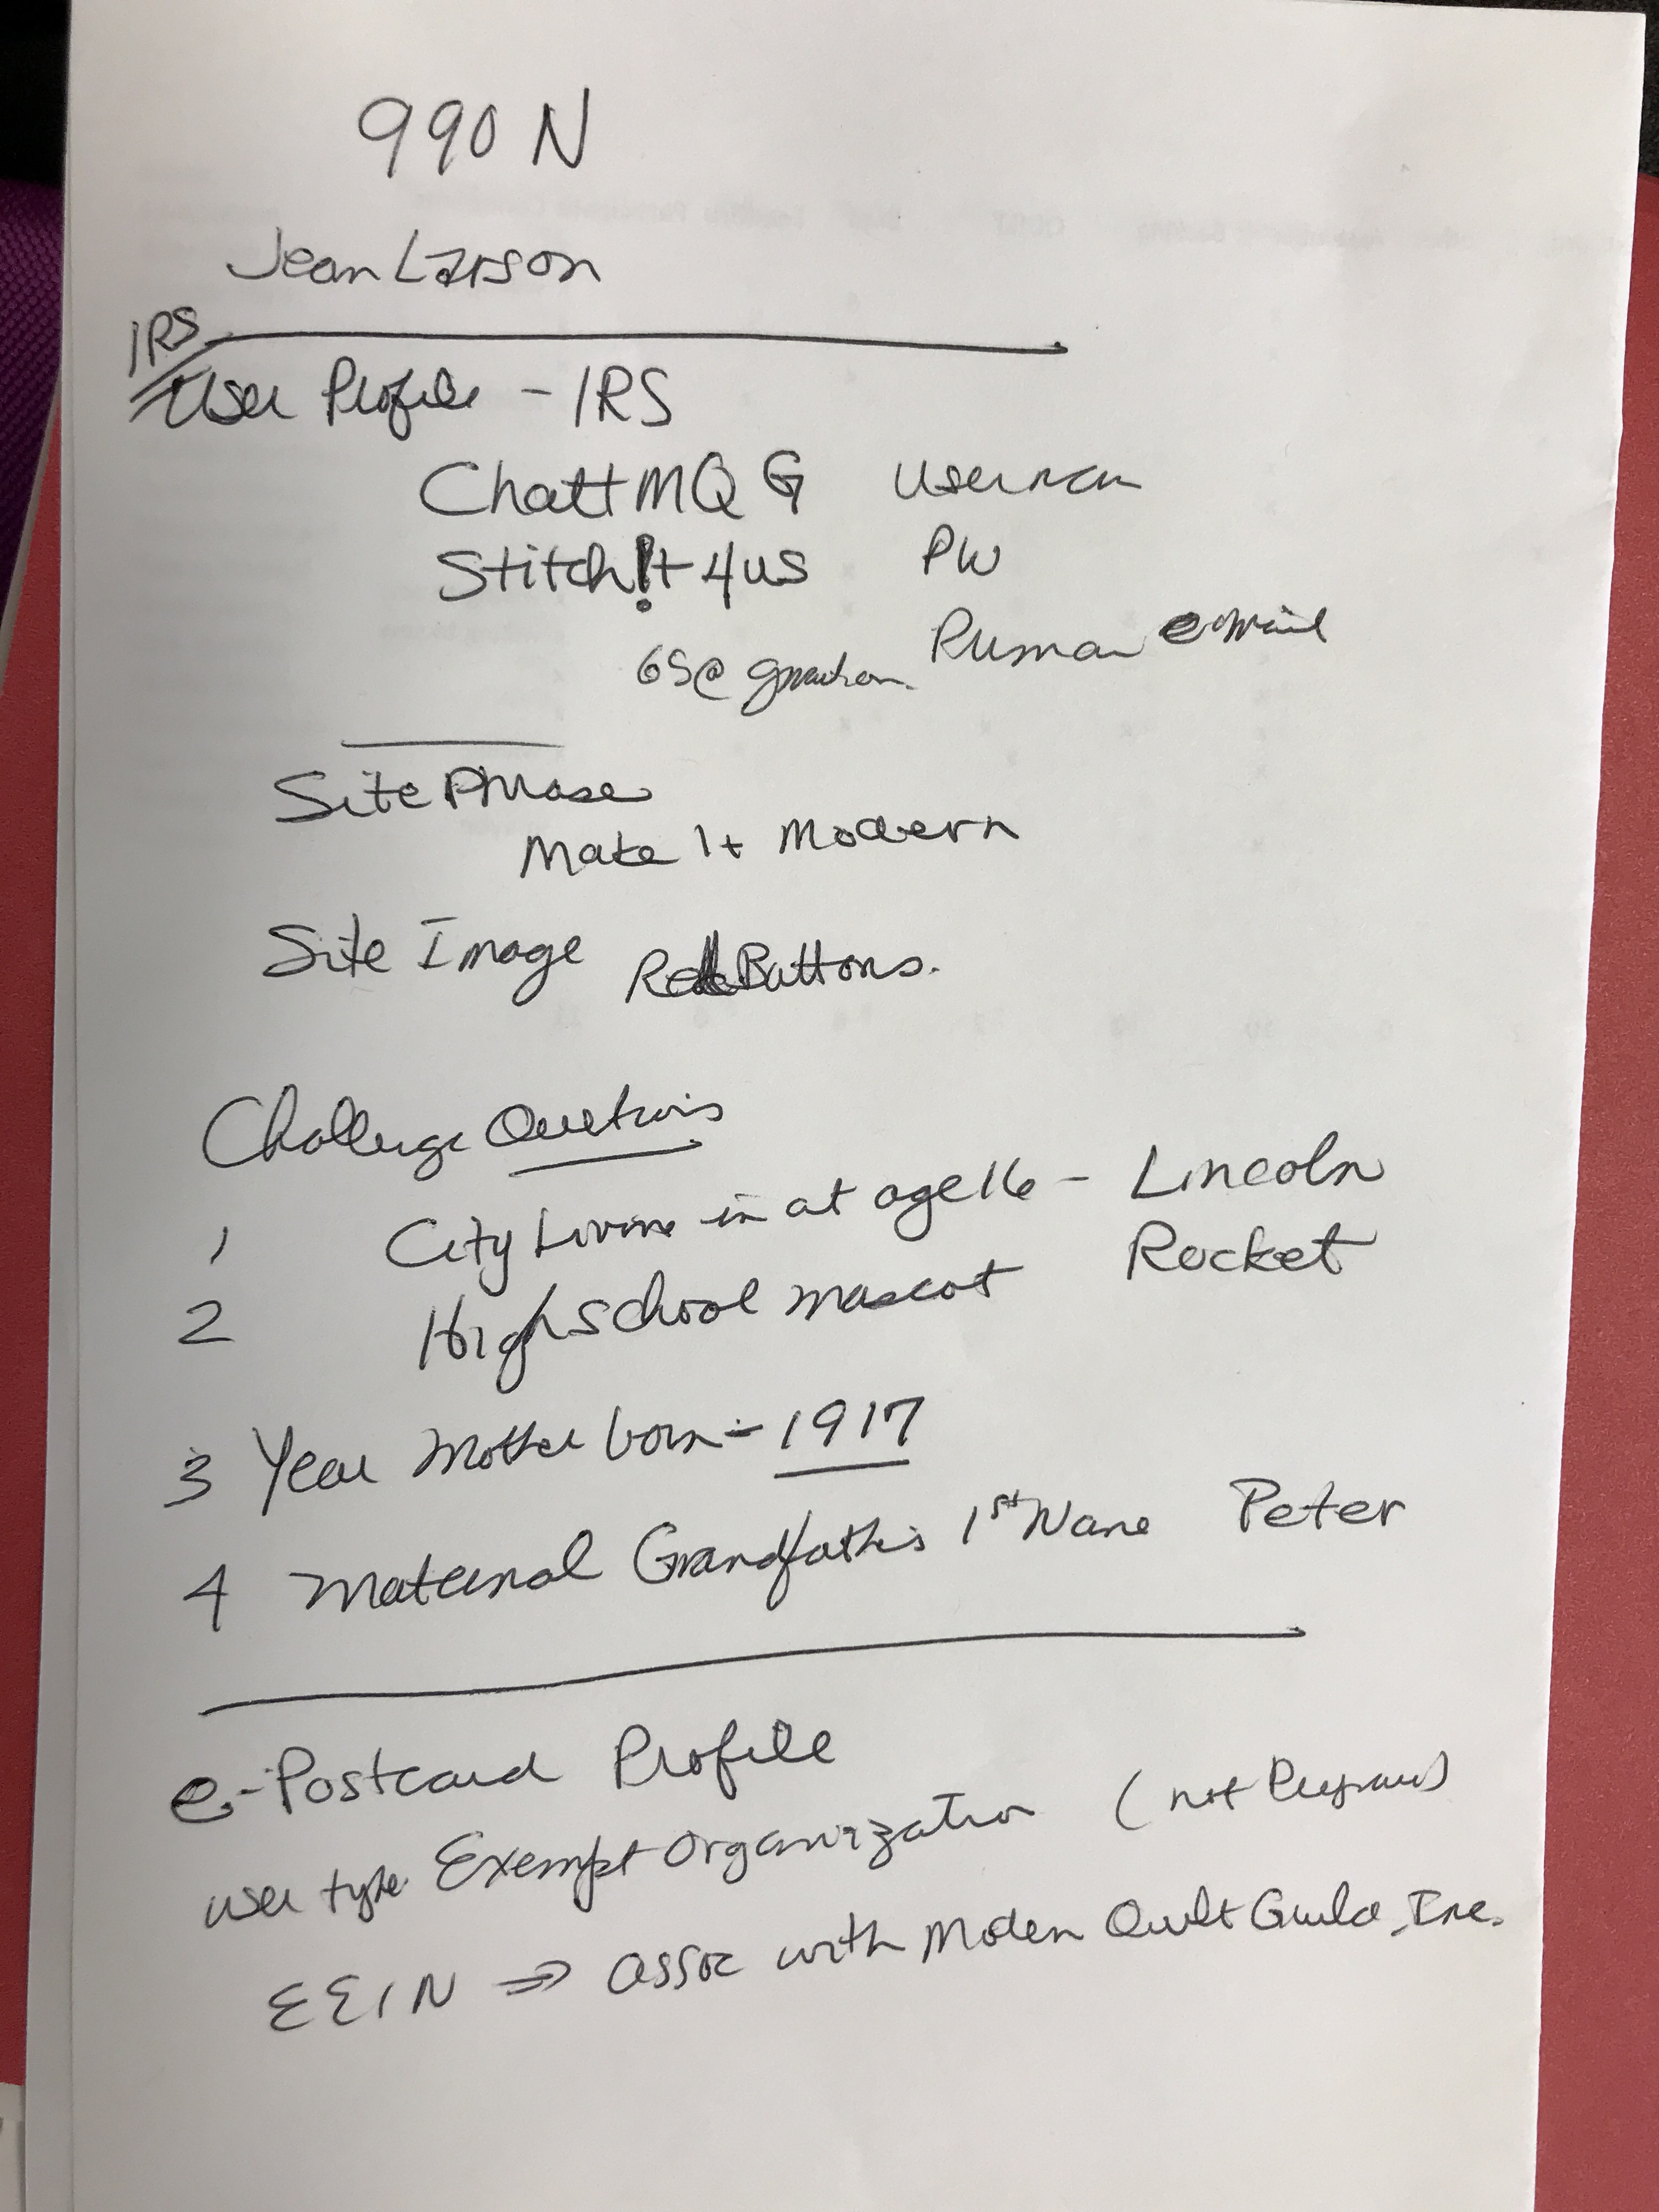 990 N
Jean Larson
IRS
User Profile - IRS
ChattMQG username
Stitch!t4us PW
65@gmail.com email
Site Phrase
Make It Modern
Site Image Red Buttons.
Challenge Questions
1 City Living in at age 16 - Lincoln
2 High School mascot Rocket
3 Year Mother born - 1917
4 Maternal Grandfather's 1st Name Peter
e-Postcard Profile
user type Exempt Organization (not Preparer)
EEIN ⇒ assoc with Modern Quilt Guild, Inc.